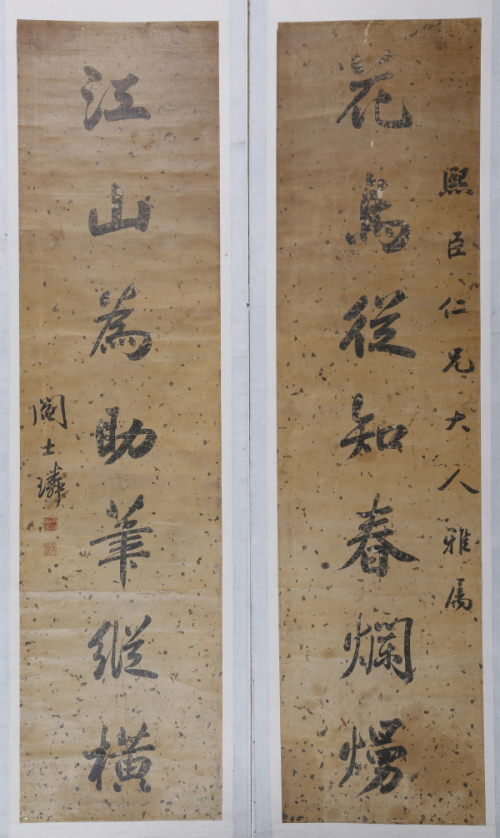 熙臣仁兄大人雅属
花鸟從知春爛熳
江山為助筆縱橫
閻士璘